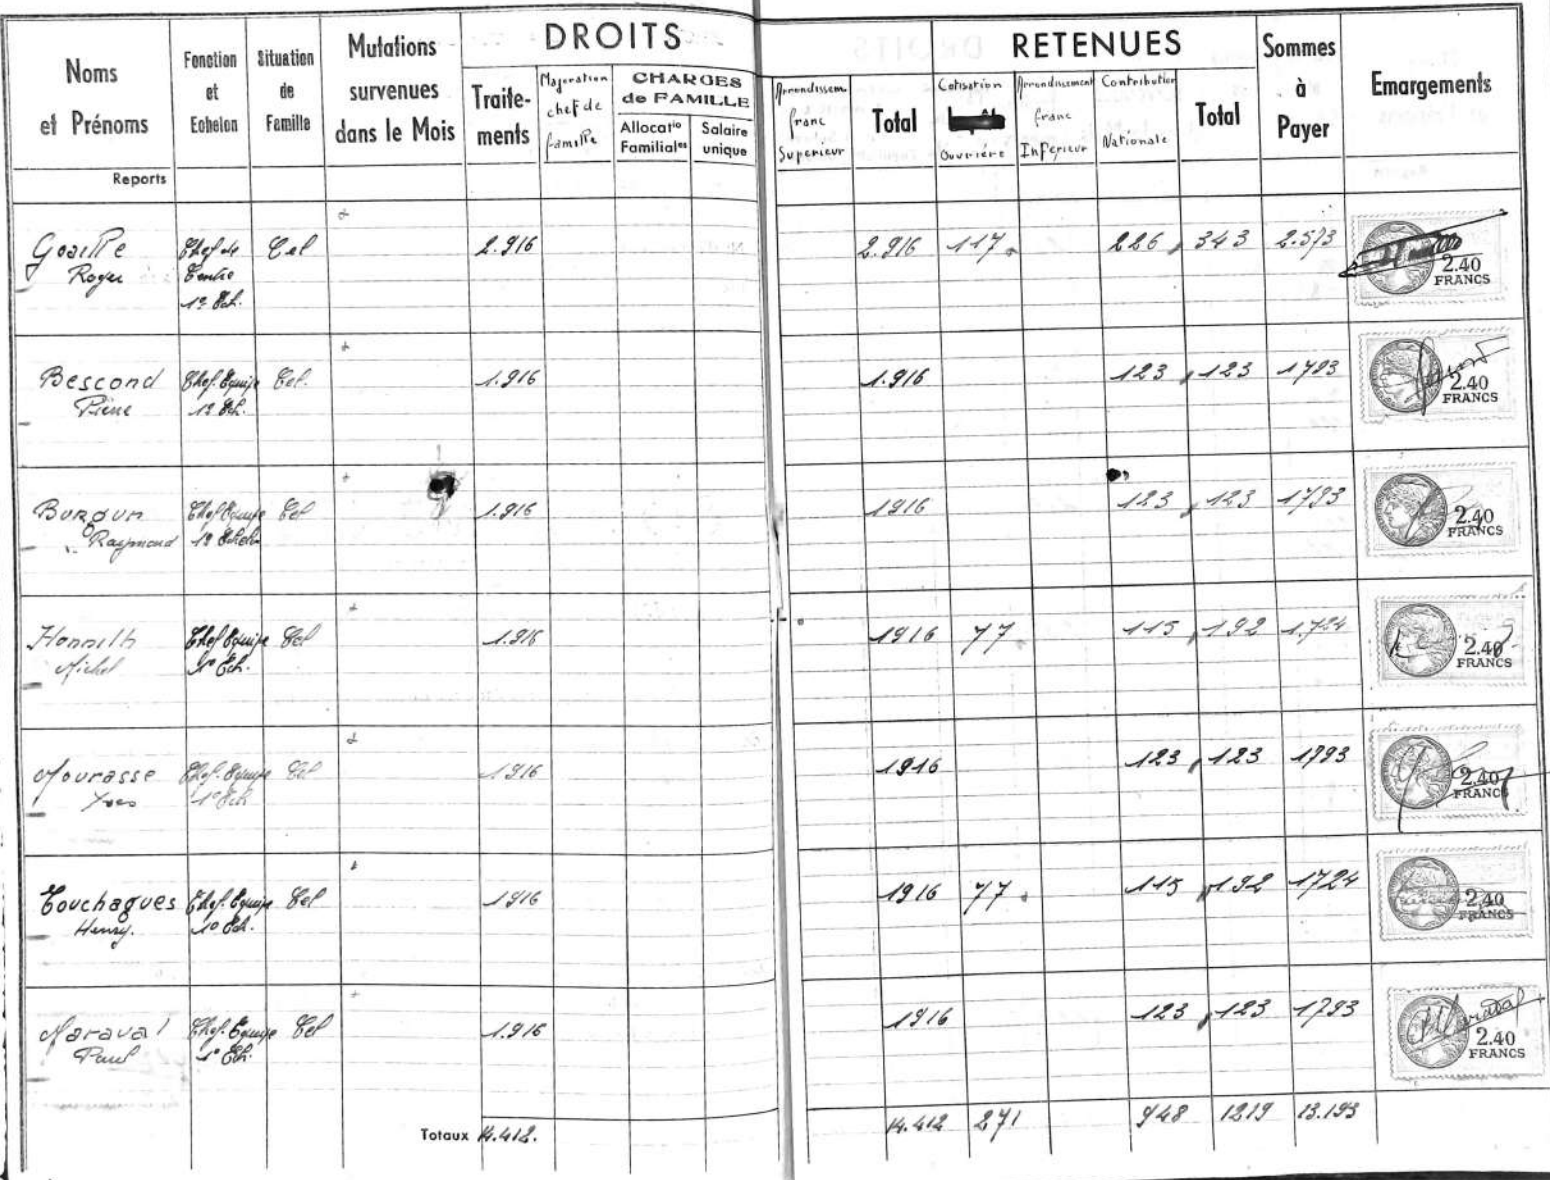 DROITS
RETENUES
Noms et Prénoms
Fonction et Echelon
Situation de Famille
Mutations survenues dans le Mois
Traite-ments
Majoration chef de famille
CHARGES de FAMILLE
Allocatio Familiales
Salaire unique
Arrondissem. franc Superieur
Total
Cotisation Ouvrière
Arrondissement franc Inferieur
Contribution Nationale
Total
Sommes à Payer
Emargements
Reports
Roger Chef de Centre 1e Ech. Cel 2.916 2.916 117 226 343 2.573 2.40 FRANCS
Bescond Pierre Chef. Equipe 1e Ech. Cel. 1.916 1.916 123 123 1793 2.40 FRANCS
Burgun Raymond Chef Equipe 1e Echelon Cel 1.916 1916 123 123 1793 2.40 FRANCS
Michel Chef Equipe 1e Ech. Cel 1.916 1916 77 115 192 1.724 2.40 FRANCS
Mourasse Yves Chef. Equipe 1e Ech Cel 1916 1916 123 123 1793 2.40 FRANCS
Touchagues Henry. Chef. Equipe 1e Ech. Cel 1916 1916 77 115 192 1724 2.40 FRANCS
Maraval Paul Chef. Equipe 1e Ech. Cel 1.916 1916 123 123 1793 Maraval 2.40 FRANCS
Totaux 14.412. 14.412 271 948 1219 13.193